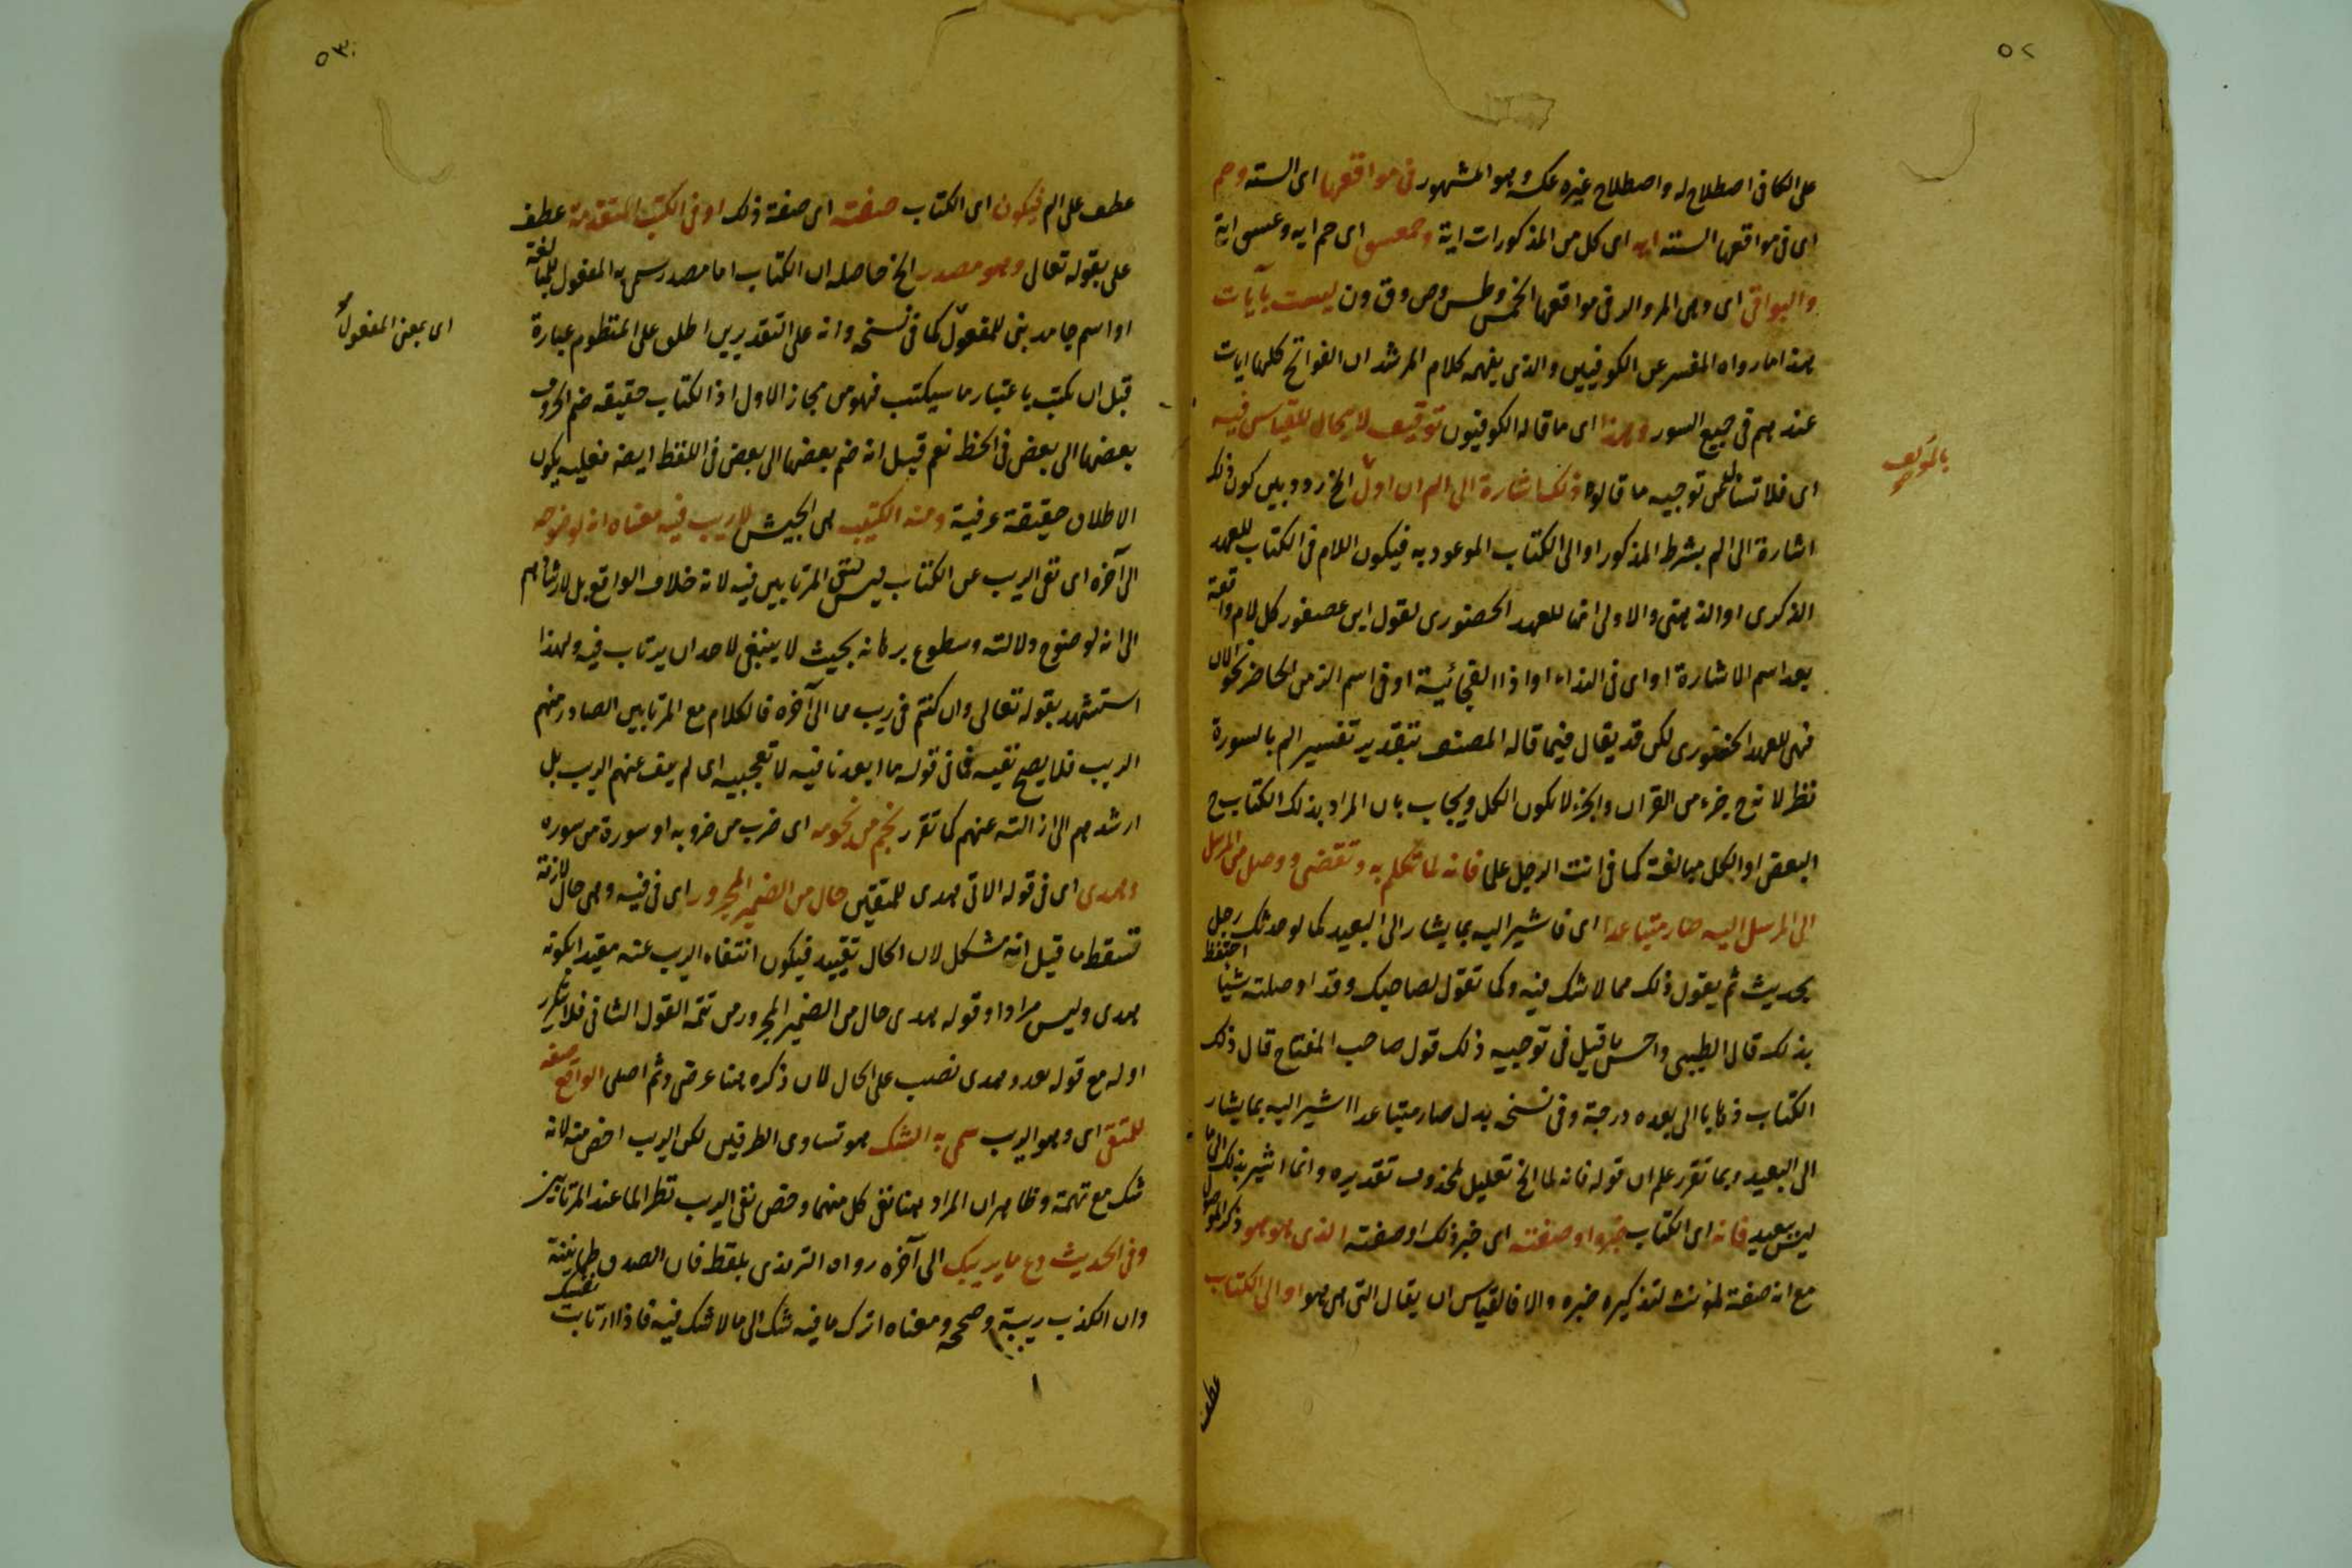 ٥٢
على الكافى اصطلاح له واصطلاح غيره عكسه وهو المشهور فى مواقعها اى الستة وحم
اى فى مواقعها الستة ايه اى كل من المذكورات اية وحمعسق اى حم ايه وعسق اية
والبواقى اى وهى المر والر فى مواقعها الخمس وطس وص وق ون ليست بآيات
هذا ما رواه المفسر عن الكوفيين والذى يفهمه كلام المرشد ان الفواتح كلها ايات
عندهم فى جميع السور وهذا اى ما قاله الكوفيون توقيف لا مجال للقياس فيه
اى فلا تسأل عن توجيه ما قالوا ذلك اشارة الى الم ان اول الخ ردد بين كون ذلك
اشارة الى الم بشرط المذكور او الى الكتاب الموعود به فيكون اللام فى الكتاب للعهد
الذكرى او الذهنى والاولى انها للعهد الحضورى لقول ابن عصفور كل لام واقعة
بعد اسم الاشارة او اى فى النداء او اذا الفجائية او فى اسم الزمن الحاضر نحو الان
فهى للعهد الحضورى لكن قد يقال فيما قاله المصنف بتقدير تفسير الم بالسورة
نظر لانه ح جزء من القران والجزء لا يكون الكل ويجاب بان المراد بذلك الكتاب ح
البعض او الكل مبالغة كما فى انت الرجل علما فانه لما تكلم به وتقضى ووصل من المرسل
الى المرسل اليه صار متباعدا اى فاشير اليه بما يشار الى البعيد كما لو حدثك رجل
بحديث ثم يقول ذلك مما لا شك فيه وكما تقول لصاحبك وقد اوصلته شيئا احتفظ
بذلك قال الطيبى واحسن ما قيل فى توجيه ذلك قول صاحب المفتاح قال ذلك
الكتاب ذهابا الى بعده درجة وفى نسخه بدل صار متباعدا اشير اليه بما يشار
الى البعيد وبما تقرر علم ان قوله فانه لما الخ تعليل لمحذوف تقديره وانما اشير بذلك الى ما
ليس ببعيد فانه اى الكتاب خبره او صفته اى خبر ذلك او صفته الذى هو هو ذكر الموصول
مع انه صفة لمؤنث لتذكيره خبره والا فالقياس ان يقال التى هى هو او الى الكتاب
عطف
٥٣
عطف على الم فيكون اى الكتاب صفته اى صفة ذلك او فى الكتب المتقدمة عطف
على بقوله تعالى وهو مصدر الخ حاصله ان الكتاب اما مصدر سمى به المفعول للمبالغة
او اسم جامد بنى للمفعول كما فى نسخه وانه على التقديرين اطلق على المنظوم عبارة
اى بمعنى المفعول
قبل ان يكتب باعتبار ما سيكتب فهو من مجاز الاول اذ الكتاب حقيقه ضم الحروف
بعضها الى بعض فى الخط نعم قيل انه ضم بعضها الى بعض فى اللفظ ايضه فعليه يكون
الاطلاق حقيقة عرفية ومنه الكتيبة هى الجيش لا ريب فيه معناه انه لوضوحه
الى آخره اى نفى الريب عن الكتاب ليس لنفى المرتابين فيه لانه خلاف الواقع بل لارشادهم
الى انه لوضوح دلالته وسطوع برهانه بحيث لا ينبغى لاحد ان يرتاب فيه ولهذا
استشهد بقوله تعالى وان كنتم فى ريب مما الى آخره فالكلام مع المرتابين الصادر منهم
الريب فلا يصح نفيه فما فى قوله ما ابعد نافيه لا تعجبيه اى لم ينف عنهم الريب بل
ارشدهم الى ازالته عنهم كما تقرر نجم من نجومه اى ضرب من ضروبه او سورة من سوره
وهدى اى فى قوله الاتى هدى للمتقين حال من الضمير المجرور اى فى فيه وهى حال لازمة
فسقط ما قيل انه مشكل لان الحال تقييد فيكون انتفاء الريب عنه مقيدا بكونه
هدى وليس مرادا وقوله هدى حال من الضمير المجرور من تتمة القول الثانى فلا تكرير
اوله مع قوله بعد وهدى نصب على الحال لان ذكره هنا عرضى وثم اصلى الواقع صفه
للمتقى اى وهو الريب سمى به الشك هو تساوى الطرفين لكن الريب اخص منه لانه
شك مع تهمة وظاهر ان المراد هنا نفى كل منهما وخص نفى الريب نظرا لما عند المرتابين
وفى الحديث دع ما يريبك الى آخره رواه الترمذى بلفظ فان الصدق طمانينة
وان الكذب ريبة وصححه ومعناه اترك ما فيه شك الى ما لا شك فيه فاذا ارتابت